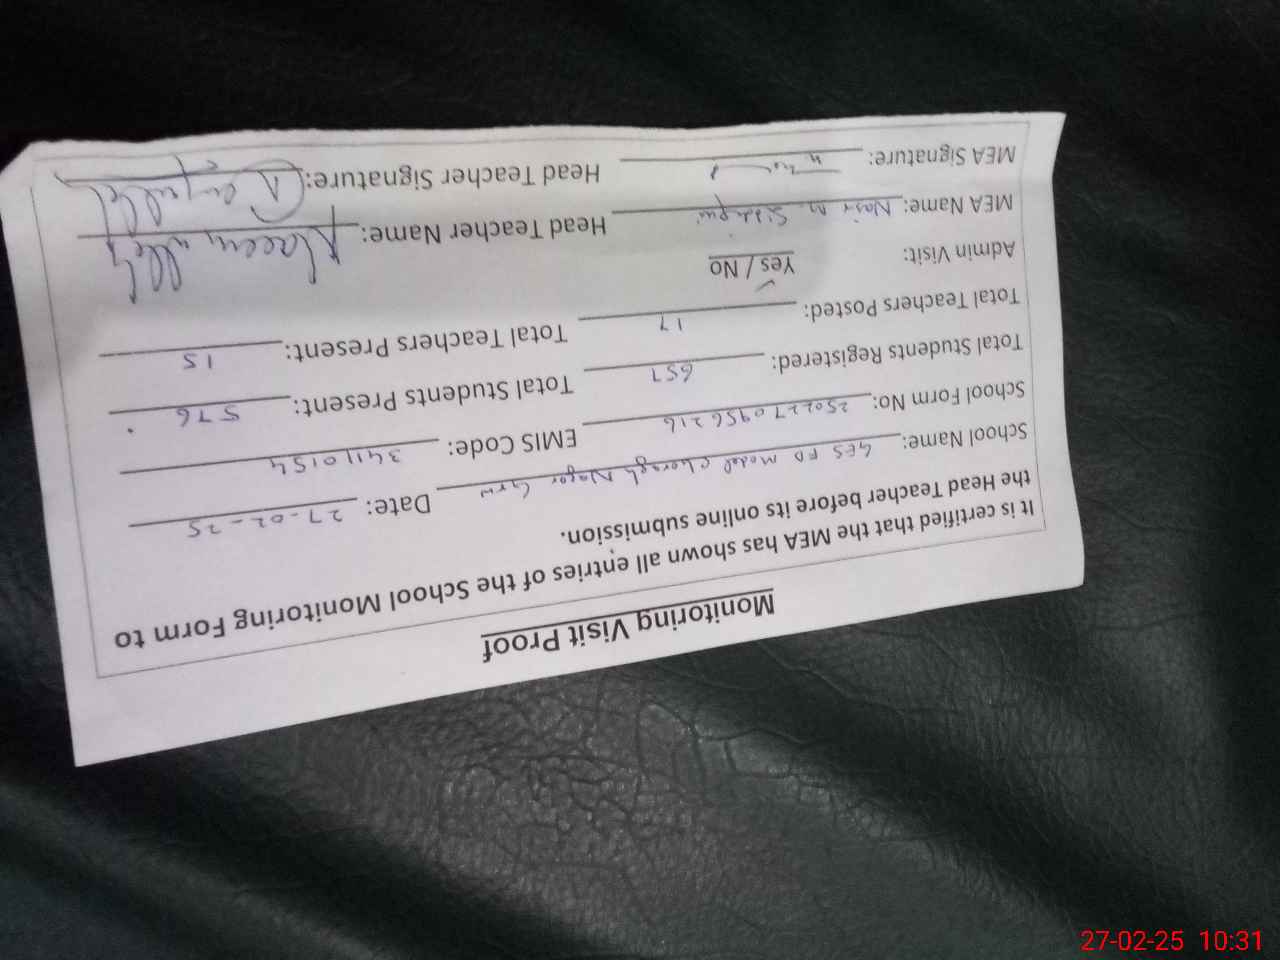 Monitoring Visit Proof
It is certified that the MEA has shown all entries of the School Monitoring Form to
the Head Teacher before its online submission.
School Name: GES FD Model Nagar Grw Date: 27-02-25
School Form No: 250227 0956216 EMIS Code: 34110154
Total Students Registered: 657 Total Students Present: 576
Total Teachers Posted: 17 Total Teachers Present: 15
Admin Visit: Yes / No
MEA Name: Nasir M. Siddiqui Head Teacher Name:
MEA Signature: Head Teacher Signature:
27-02-25 10:31